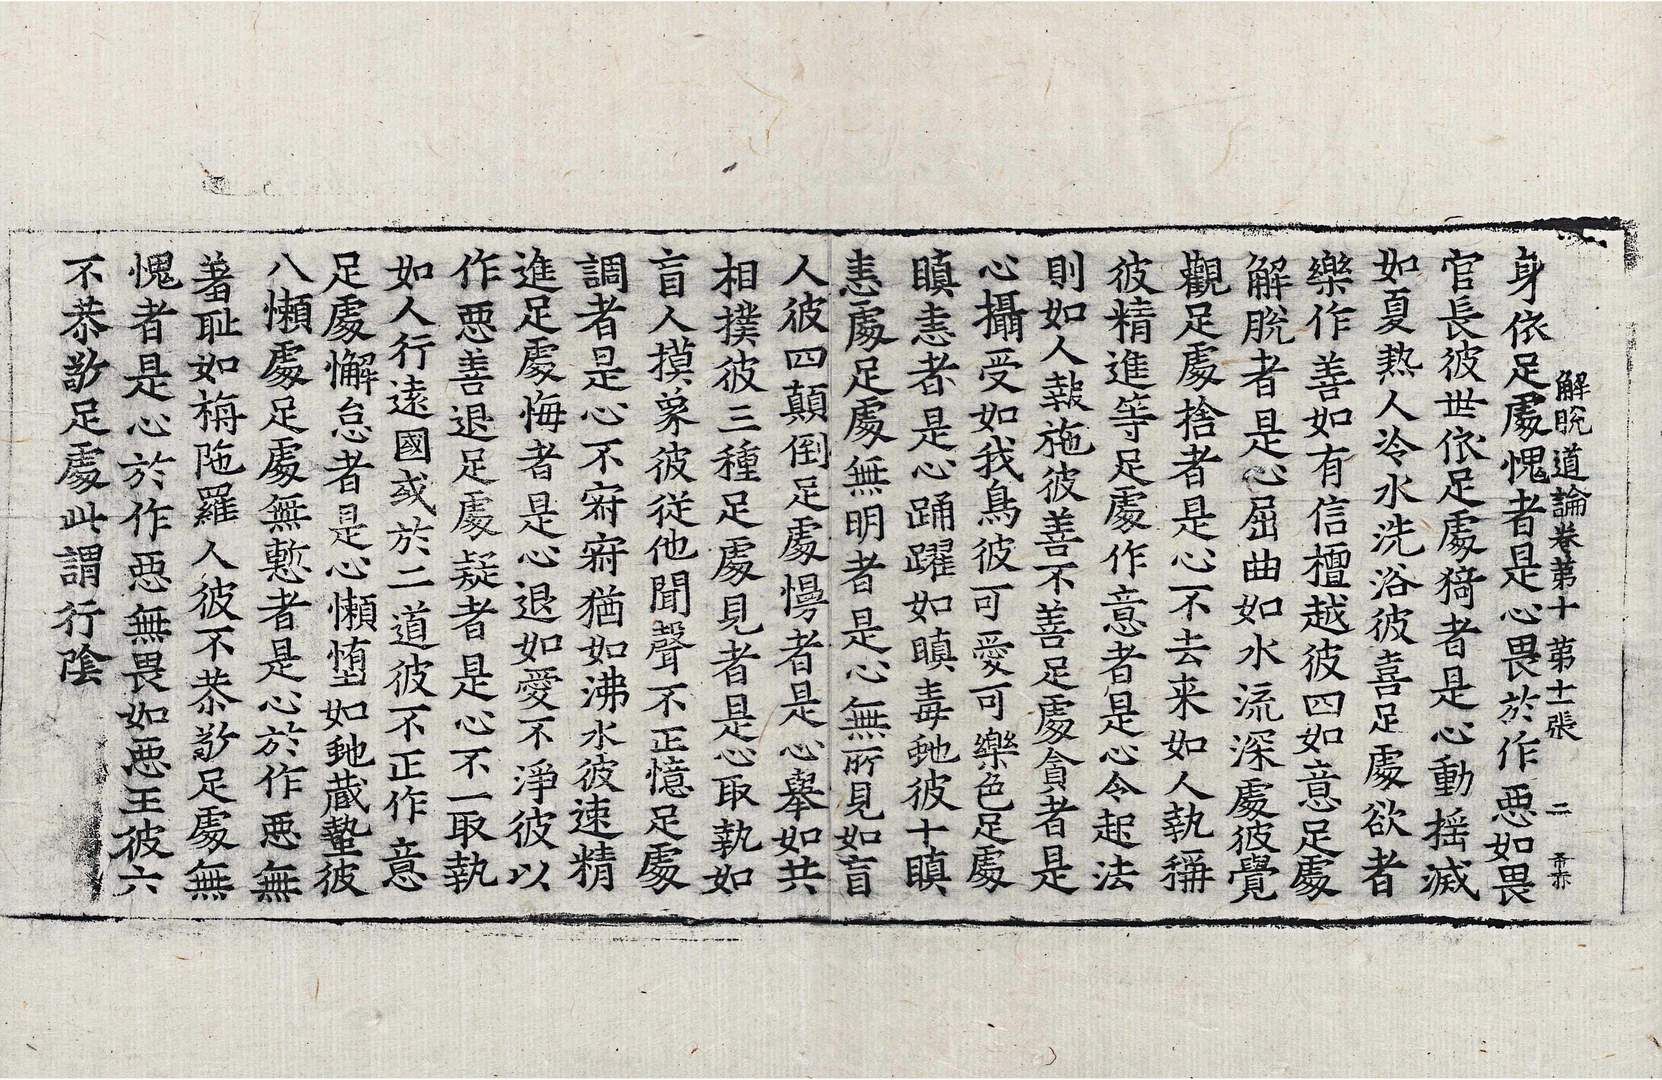 解脫道論卷第十 第十二張 二 帝亦
身依足處愧者是心畏於作惡如畏
官長彼世依足處猗者是心動揺滅
如夏熱人冷水洗浴彼喜足處欲者
樂作善如有信檀越彼四如意足處
解脫者是心屈曲如水流深處彼覺
觀足處捨者是心不去来如人執稱
彼精進等足處作意者是心令起法
則如人報施彼善不善足處貪者是
心攝受如我鳥彼可愛可樂色足處
瞋恚者是心踊躍如瞋毒虵彼十瞋
恚處足處無明者是心無所見如盲
人彼四顛倒足處慢者是心舉如共
相撲彼三種足處見者是心取執如
盲人摸象彼從他聞聲不正憶足處
調者是心不寂寂猶如沸水彼速精
進足處悔者是心退如愛不淨彼以
作惡善退足處疑者是心不一取執
如人行遠國或於二道彼不正作意
足處懈怠者是心懶墮如虵蔵蟄彼
八懶處足處無慙者是心於作惡無
著耻如栴陁羅人彼不恭敬足處無
愧者是心於作惡無畏如惡王彼六
不恭敬足處此謂行陰